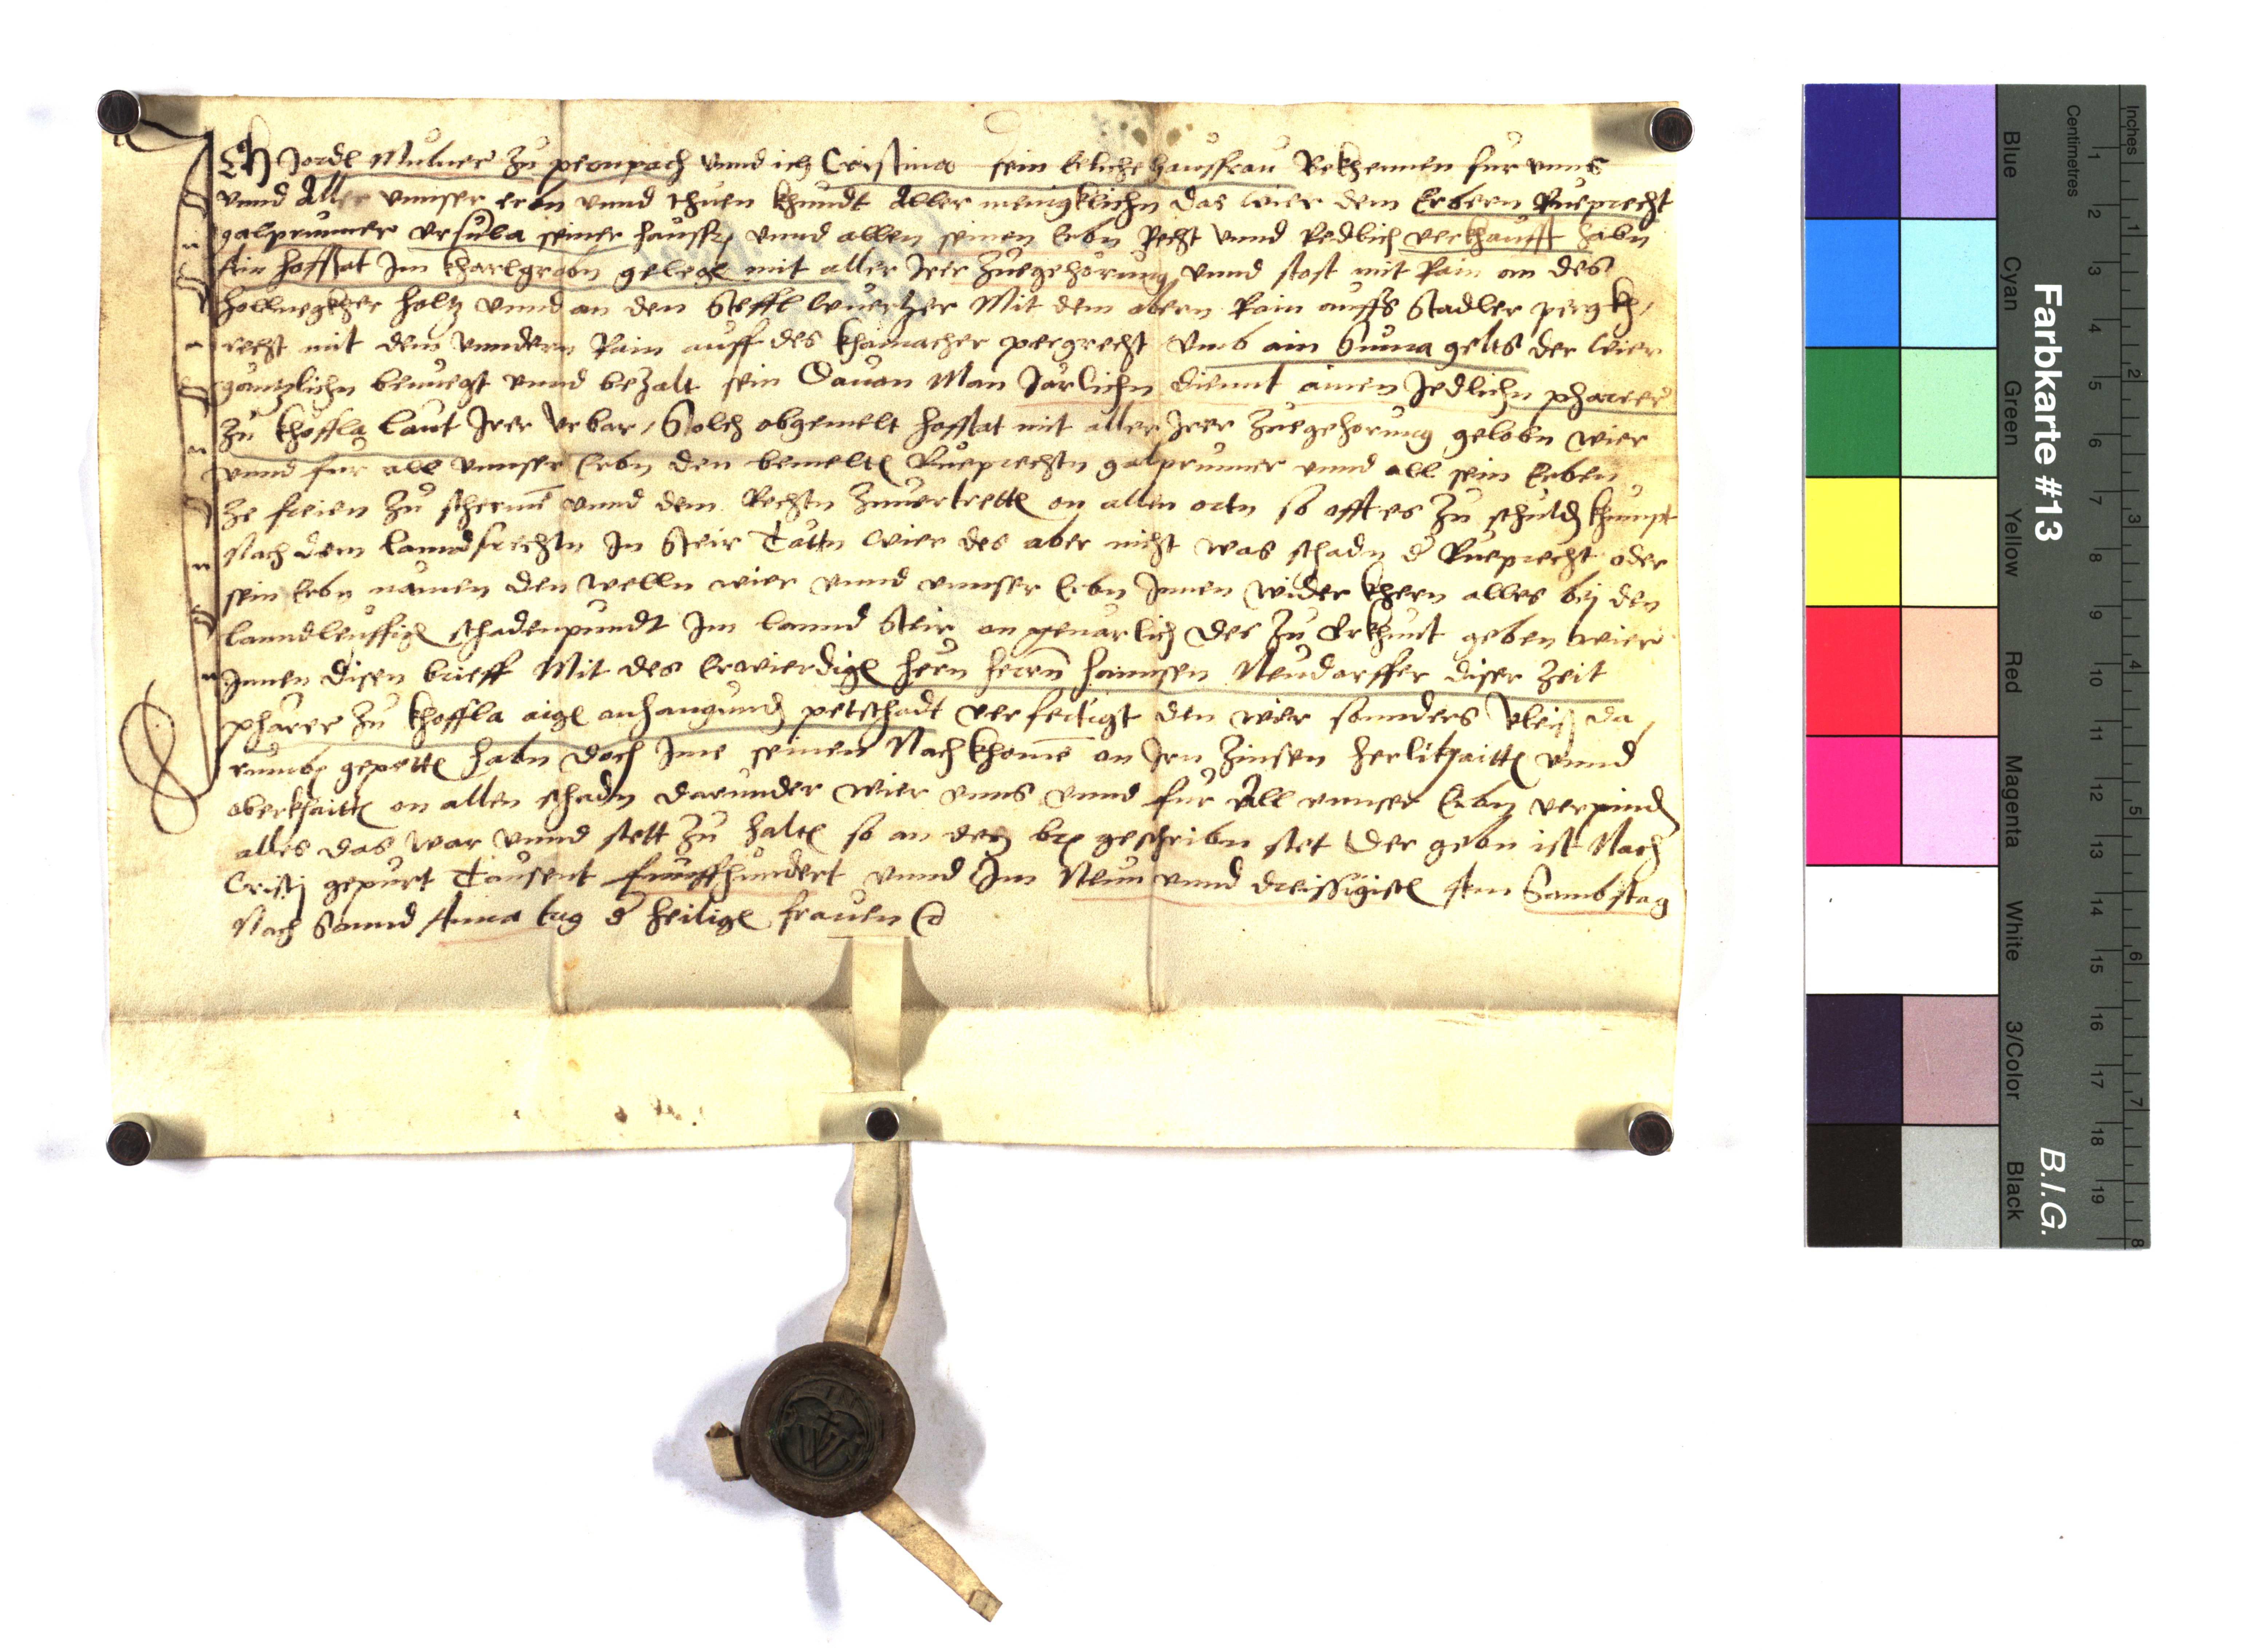 Ich Jordl Mulner zu pernpach vnnd ich Cristina sein Eeliche hausfrau Bekhennen fur vnns
vnnd Aller vnnser erbn vnnd thuen khundt Aller menigklichn das wier dem Erbern Rueprecht
galprunner vrsula seiner hausfr vnnd allen seinen Erbn Recht vnnd Redlich verkhaufft habn
Ain hofstat Im kharlgrabn gelegn mit aller Irer zuegehorung vnnd stost mit Rain an des
holtz vnnd an den Steffl Mit dem obern Rain auffs Stadler pergkh/
recht mit dem vnndern Rain auff des khamacher pergrecht vmb ain Suma gelts der wier
gantzlichn benuegt vnnd bezalt sein Dauon Man Jarlichn diennt ainen Jedlichn pharrer
zu khofla laut Irer vrbar / Solch obgemelt hofstat mit aller Irer zuegehorung gelobn wier
vnnd fur all vnnser Erbn den bemeltn Rueprechtn galprunner vnnd all sein Erben
ze freien zu schermen vnnd dem Rechtn zuuertrettn on allen ortn so offt es zu schuldn khumpt
Nach dem lanndsrechtn In Steir Tattn wier des aber nicht was schadn d Rueprecht oder
sein Erbn namen den welln wier vnnd vnnser Erbn Innen widerkhern alles bej den
lanndleuffign schadenpundt Im lannd Steir on geuarlich des zu Vrkhunt geben wier
Innen disen brieff Mit des Erwierdign hern herrn hannsen Neudorffer diser zeit
pharer zu khoffla aign anhangundn petschadt verfertigt den wier sonders vleis da/
rumb gepettn habn doch Ime seinen Nachkhomen on Irn zinsen herlikhaittn vnnd
oberkhaittn on allen schadn darunder wier vnns vnnd fur All vnnser Erbn verpindn
alles das war vnnd stett zu haltn so an dem br geschribn stet Der gebn ist Nach
Cristj gepurt Tausent funffhundert vnnd Im Neun vnnd dreissigistn Am Sambstag
Nach Sannd Anna tag d heilign frauen
Farbkarte #13
B.I.G.
Centimetres
Inches
Blue
Cyan
Green
Yellow
Red
Magenta
White
3/Color
Black
1 2 3 4 5 6 7 8 9 10 11 12 13 14 15 16 17 18 19
1 2 3 4 5 6 7 8